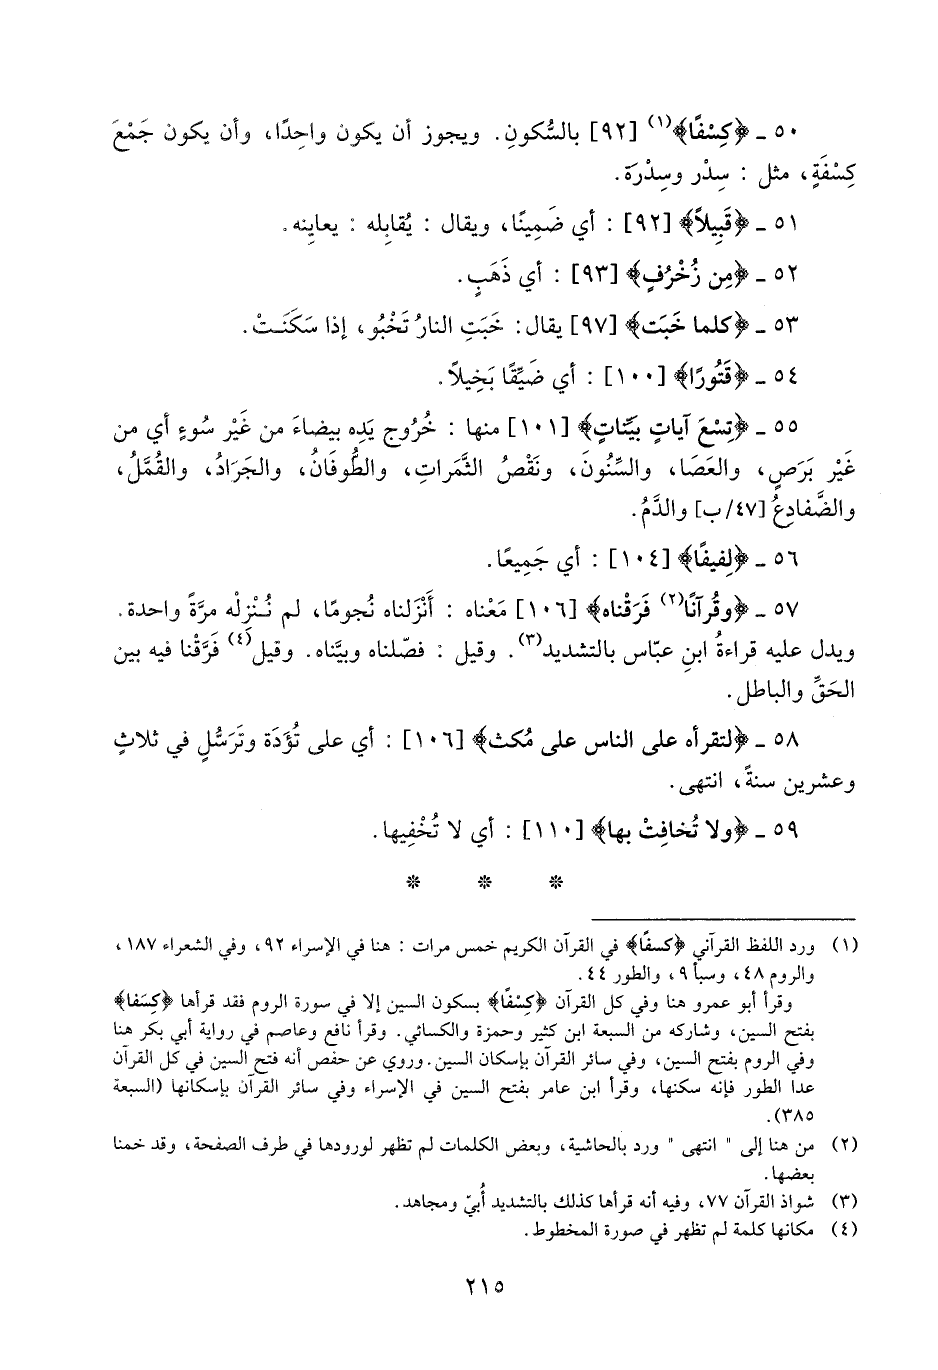 ٥٠ ـ ﴿كِسْفًا﴾(١) [٩٢] بالسُّكونِ. ويجوز أن يكون واحِدًا، وأن يكون جَمْعَ
كِسْفَةٍ، مثل : سِدْر وسِدْرَة.
٥١ ـ ﴿قَبِيلاً﴾ [٩٢] : أي ضَمِينًا، ويقال : يُقابِله : يعاينِه.
٥٢ ـ ﴿مِن زُخْرُفٍ﴾ [٩٣] : أي ذَهَبٍ.
٥٣ ـ ﴿كلما خَبَت﴾ [٩٧] يقال: خَبَتِ النارُ تَخْبُو، إذا سَكَنَتْ.
٥٤ ـ ﴿قَتُورًا﴾ [١٠٠] : أي ضَيِّقًا بَخِيلاً.
٥٥ ـ ﴿تِسْعَ آياتٍ بيِّناتٍ﴾ [١٠١] منها : خُرُوج يَدِه بيضاءَ من غَيْر سُوءٍ أي من
غَيْر بَرَصٍ، والعَصَا، والسِّنُونَ، ونَقْصُ الثَّمَراتِ، والطُّوفَانُ، والجَرَادُ، والقُمَّلُ،
والضَّفادِعُ [٤٧/ب] والدَّمُ.
٥٦ ـ ﴿لِفيفًا﴾ [١٠٤] : أي جَمِيعًا.
٥٧ ـ ﴿وقُرآنًا(٢) فَرَقْناه﴾ [١٠٦] مَعْناه : أَنْزَلناه نُجومًا، لم نُنْزِلْه مرَّةً واحدة.
ويدل عليه قراءةُ ابنِ عبّاس بالتشديد(٣). وقيل : فصّلناه وبيَّناه. وقيل(٤) فَرَّقْنا فيه بين
الحَقِّ والباطل.
٥٨ ـ ﴿لتقرأه على الناس على مُكث﴾ [١٠٦] : أي على تُؤَدَة وتَرَسُّلٍ في ثلاثٍ
وعشرين سنةً، انتهى.
٥٩ ـ ﴿ولا تُخافِتْ بها﴾ [١١٠] : أي لا تُخْفِيها.
* * *
(١) ورد اللفظ القرآني ﴿كسفًا﴾ في القرآن الكريم خمس مرات : هنا في الإسراء ٩٢، وفي الشعراء ١٨٧،
والروم ٤٨، وسبأ ٩، والطور ٤٤.
وقرأ أبو عمرو هنا وفي كل القرآن ﴿كِسْفًا﴾ بسكون السين إلا في سورة الروم فقد قرأها ﴿كِسَفا﴾
بفتح السين، وشاركه من السبعة ابن كثير وحمزة والكسائي. وقرأ نافع وعاصم في رواية أبي بكر هنا
وفي الروم بفتح السين، وفي سائر القرآن بإسكان السين. وروي عن حفص أنه فتح السين في كل القرآن
عدا الطور فإنه سكنها، وقرأ ابن عامر بفتح السين في الإسراء وفي سائر القرآن بإسكانها (السبعة
٣٨٥).
(٢) من هنا إلى " انتهى " ورد بالحاشية، وبعض الكلمات لم تظهر لورودها في طرف الصفحة، وقد خمنا
بعضها.
(٣) شواذ القرآن ٧٧، وفيه أنه قرأها كذلك بالتشديد أُبيّ ومجاهد.
(٤) مكانها كلمة لم تظهر في صورة المخطوط.
٢١٥